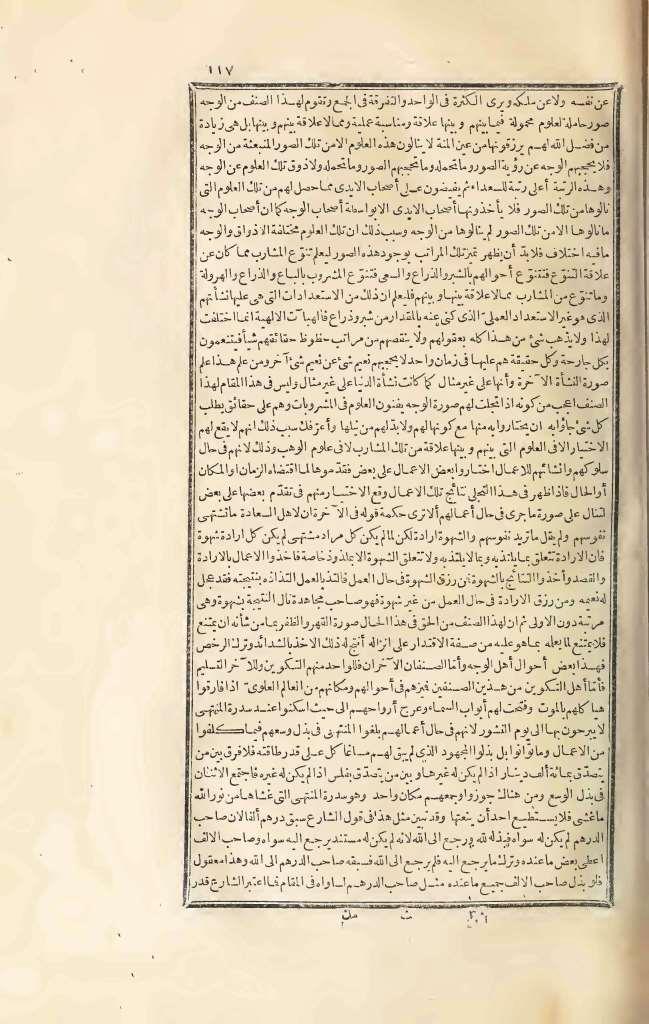 ١١٧
عن نفسه ولا عن ملكه ويرى الكثرة فى الواحد والتفرقة فى الجمع وتقوم لهذا الصنف من الوجه
صور حاملة لعلوم محمولة فيما بينهم وبينها علاقة ومناسبة عملية ومما لا علاقة بينهم وبينها بل هى زيادة
من فضل الله لهم يرزقونها من عين المنة لا ينالون هذه العلوم الا من تلك الصور المنبعثة من الوجه
فلا يحجبهم الوجه عن رؤية الصور وما تحمله وما تحجبهم الصور وما تحمله ولا ذوق تلك العلوم عن الوجه
وهذه الرتبة أعلى رتبة للسعداء ثم يفيضون على أصحاب الايدى مما حصل لهم من تلك العلوم التى
نالوها من تلك الصور فلا يأخذونها أصحاب الايدى الا بواسطة أصحاب الوجه كما ان أصحاب الوجه
ما نالوها الا من تلك الصور لم ينالوها من الوجه وسبب ذلك ان تلك العلوم مختلفة الاذواق والوجه
ما فيه اختلاف فلا بدّ أن يظهر تميز تلك المراتب بوجود هذه الصور ليعلم تنوّع المشارب مما كان عن
علاقة التنوّع فتتنوّع أحوالهم بالشبر والذراع والسعى فتنوّع المشروب بالباع والذراع والهرولة
وما تنوّع من المشارب مما لا علاقة بينها وبينهم فليعلم ان ذلك من الاستعدادات التى هى عليها نشأتهم
الذى هو غير الاستعداد العملىّ الذى كنى عنه بالمقدار من شبر وذراع فالهبات الالهية انما اختلفت
لهذا ولا يذهب شئ من هذا كله بعقولهم ولا ينقصهم من مراتب حظوظ حقائقهم شيأ فيتنعمون
بكل جارحة وكل حقيقة هم عليها فى زمان واحد لا يحجبهم نعيم شئ عن نعيم شئ آخر ومن علم هذا علم
صورة النشأة الآخرة وأنها على غير مثال كما كانت نشأة الدنيا على غير مثال وليس فى هذا المقام لهذا
الصنف اعجب من كونه اذا تجلت لهم صورة الوجه بفنون العلوم فى المشروبات وهم على حقائق يطلب
كل شئ جاؤا به ان يختاروا به منها مع كونها لهم ولا بد لهم من نيلها وأعرفك سبب ذلك انهم لا يقع لهم
الاختيار الا فى العلوم التى بينهم وبينها علاقة من تلك المشارب لا فى علوم الوهب وذلك لانهم فى حال
سلوكهم وانشائهم للاعمال اختاروا بعض الاعمال على بعض فقدّموها لما اقتضاه الزمان او المكان
أو الحال فاذا ظهر فى هذا التجلى نتائج تلك الاعمال وقع الاختيار منهم فى تقدّم بعضها على بعض
لتنال على صورة ما جرى فى حال أعمالهم ألا ترى حكمة قوله فى الآخرة ان لاهل السعادة ما تشتهى
نفوسهم ولم يقل ما تريد نفوسهم والشهوة ارادة لكن لما لم يكن كل مراد مشتهى لم يكن كل ارادة شهوة
فان الارادة تتعلق بما يلتذ به وبما لا يلتذ به ولا تتعلق الشهوة الا بما يلتذ خاصة فاخذوا الاعمال بالارادة
والقصد وأخذوا النتائج بالشهوة فمن رزق الشهوة فى حال العمل فالتذ بالعمل التذاذه بنتيجته فقد عجل
له نعيمه ومن رزق الارادة فى حال العمل من غير شهوة فهو صاحب مجاهدة نال النتيجة بشهوة وهى
مرتبة دون الاولى ثم ان لهذا الصنف من الحق فى هذا الحال صورة القهر والظفر بما من شأنه ان يمتنع
فلا يمتنع لما يعله بما هو عليه من صفة الاقتدار على انزاله أنتج له ذلك الاخذ بالشدائد وترك الرخص
فهذا بعض أحوال أهل الوجه وأما الصنفان الآخران فللواحد منهم التكوين وللآخر التسليم
فأمّا أهل التكوين من هذين الصنفين فتميزهم فى أحوالهم ومكانهم من العالم العلوى اذا فارقوا
هياكلهم بالموت وفتحت لهم أبواب السماء وعرج أرواحهم الى حيث اسكنوا عند سدرة المنتهى
لا يبرحون بها الى يوم النشور لانهم فى حال أعمالهم بلغوا المنتهى فى بذل وسعهم فيما كلفوا
من الاعمال وما توانوا بل بذلوا المجهود الذى لم يبق لهم مساغا كل على قدر طاقته فلا فرق بين من
يتصدّق بمائة ألف دينار اذا لم يكن له غيرها وبين من يتصدّق بفلس اذا لم يكن له غيره فاجتمع الاثنان
فى بذل الوسع ومن هنالك جوزوا وجمعهم مكان واحد وهو سدرة المنتهى التى غشاها من نور الله
ما غشى فلا يستطيع احد أن ينعتها وقد تبين مثل هذا فى قول الشارع سبق درهم ألفا لان صاحب
الدرهم لم يكن له سواه فبذله لله ورجع الى الله لانه لم يكن له مستند يرجع اليه سواه وصاحب الالف
اعطى بعض ما عنده وترك ما يرجع اليه فلم يرجع الى الله فسبقه صاحب الدرهم الى الله وهذا معقول
فلو بذل صاحب الالف جميع ما عنده مثل صاحب الدرهم لساواه فى المقام فما اعتبر الشارع قدر